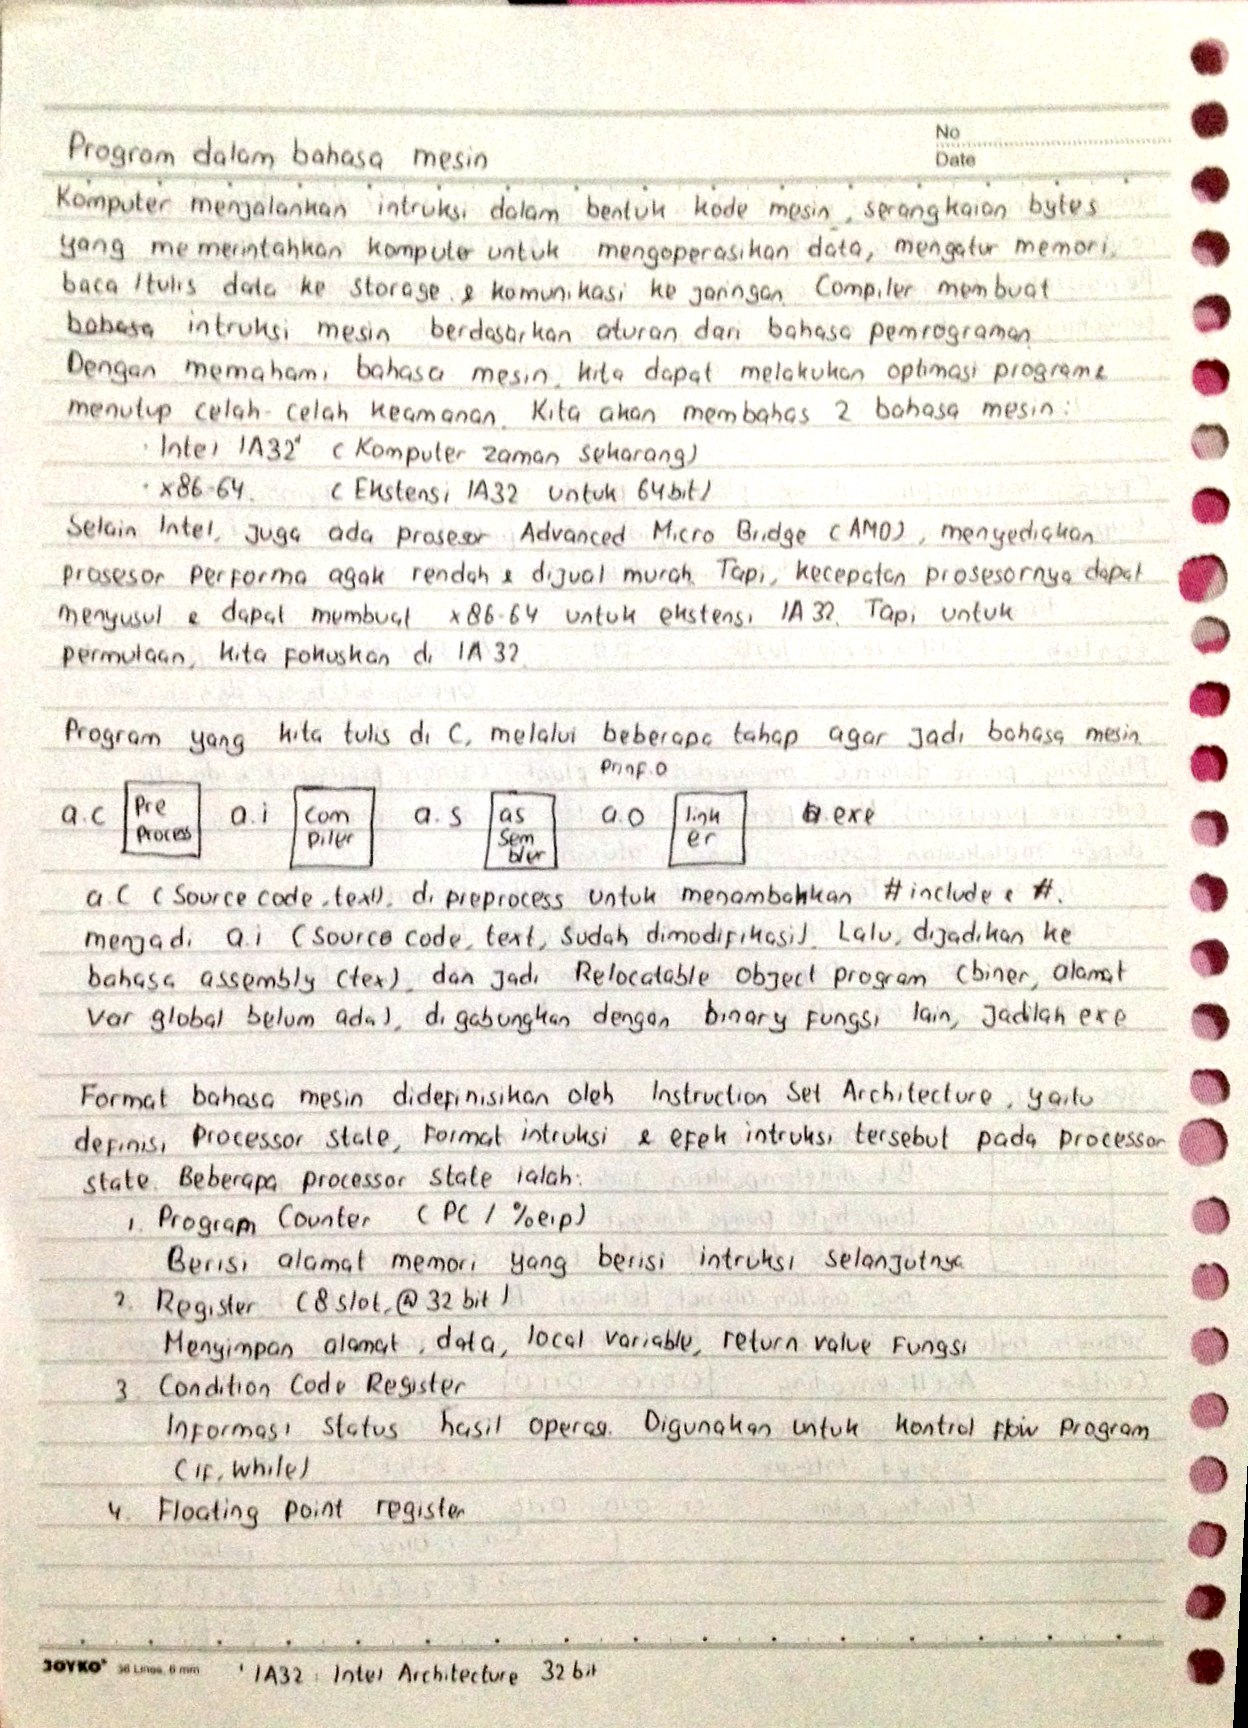 No
Date
Program dalam bahasa mesin
Komputer menjalankan intruksi dalam bentuk kode mesin, serangkaian bytes
yang memerintahkan komputer untuk mengoperasikan data, mengatur memori,
baca/tulis data ke storage & komunikasi ke jaringan. Compiler membuat
bahasa intruksi mesin berdasarkan aturan dari bahasa pemrograman
Dengan memahami bahasa mesin, kita dapat melakukan optimasi program &
menutup celah-celah keamanan. Kita akan membahas 2 bahasa mesin:
· Intel IA32' (Komputer zaman sekarang)
· x86-64. (Ekstensi IA32 untuk 64bit)
Selain Intel, juga ada prosesor Advanced Micro Bridge (AMD), menyediakan
prosesor performa agak rendah & dijual murah. Tapi, kecepatan prosesornya dapat
menyusul & dapat membuat x86-64 untuk ekstensi IA32. Tapi untuk
permulaan, kita fokuskan di IA32
Program yang kita tulis di C, melalui beberapa tahap agar jadi bahasa mesin
printf.o
a.c Pre process a.i Com piler a.s as sem bler a.o link er a.exe
a.c (Source code, text), di preprocess untuk menambahkan #include & #.
menjadi a.i (source code, text, sudah dimodifikasi). Lalu, dijadikan ke
bahasa assembly (tex), dan jadi Relocatable object program (biner, alamat
var global belum ada), digabungkan dengan binary fungsi lain, jadilah exe
Format bahasa mesin didefinisikan oleh Instruction Set Architecture, yaitu
definisi Processor state, format intruksi & efek intruksi tersebut pada processor
state. Beberapa processor state ialah:
1. Program Counter (PC / %eip)
Berisi alamat memori yang berisi intruksi selanjutnya
2. Register (8 slot, @ 32 bit)
Menyimpan alamat, data, local variable, return value fungsi
3. Condition Code Register
Informasi status hasil operasi. Digunakan untuk kontrol flow program
(if, while)
4. Floating point register
JOYKO 36 Lines, 6 mm ' IA32 : Intel Architecture 32 bit